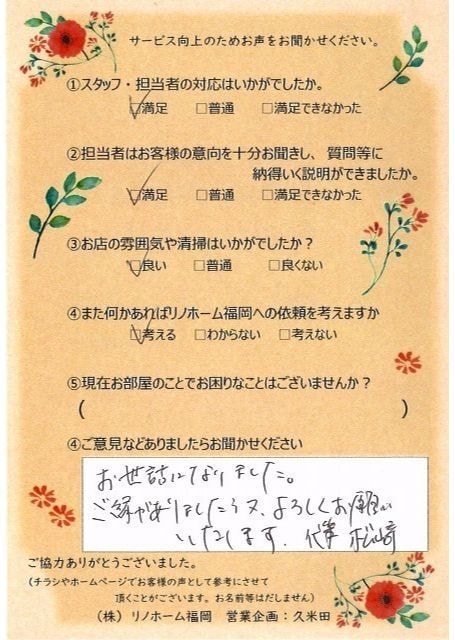 サービス向上のためお声をお聞かせください。
①スタッフ・担当者の対応はいかがでしたか。
☑満足 □普通 □満足できなかった
②担当者はお客様の意向を十分お聞きし、質問等に
納得いく説明ができましたか。
☑満足 □普通 □満足できなかった
③お店の雰囲気や清掃はいかがでしたか？
☑良い □普通 □良くない
④また何かあればリノホーム福岡への依頼を考えますか
☑考える □わからない □考えない
⑤現在お部屋のことでお困りなことはございませんか？
( )
④ご意見などありましたらお聞かせください
お世話になりました。
ご縁がありましたら又、よろしくお願い
いたします. 代筆 松崎
ご協力ありがとうございました。
(チラシやホームページでお客様の声として参考にさせて
頂くことがございます。お名前等はだしません)
(株) リノホーム福岡 営業企画：久米田